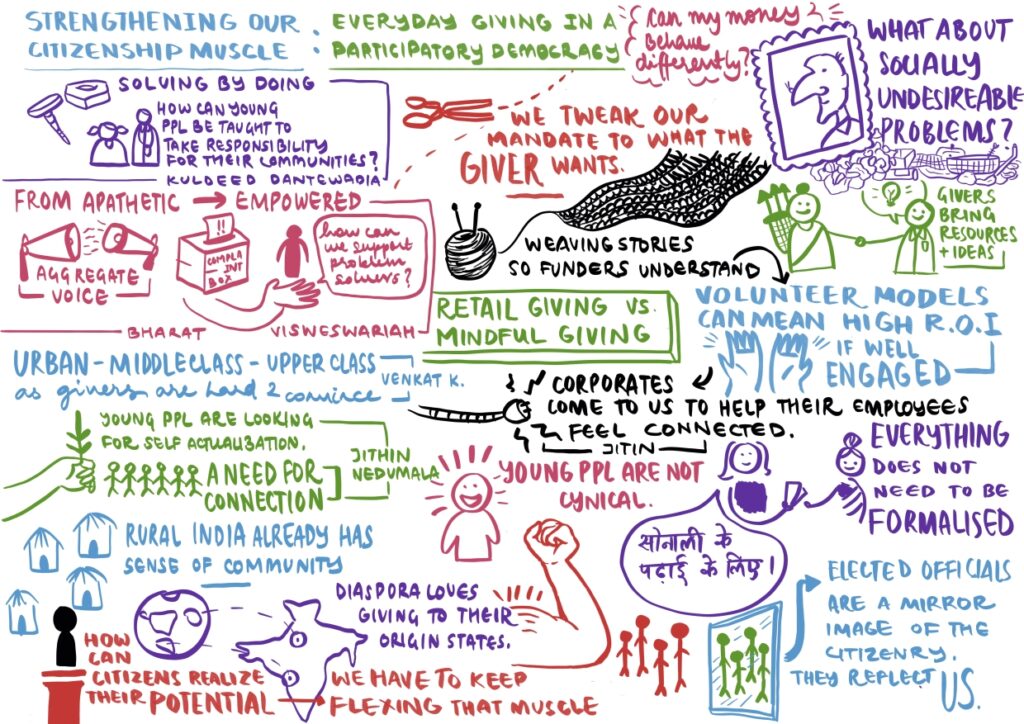 STRENGTHENING OUR
CITIZENSHIP MUSCLE :
EVERYDAY GIVING IN A
PARTICIPATORY DEMOCRACY
Can my money 2
behave
differently?
WHAT ABOUT
SOCIALLY
UNDESIREABLE
PROBLEMS?
SOLVING BY DOING
HOW CAN YOUNG
PPL BE TAUGHT TO
TAKE RESPONSIBILITY
FOR THEIR COMMUNITIES?
KULDEED DANTEWADIA
WE TWEAK OUR
MANDATE TO WHAT THE
GIVER WANTS.
FROM APATHETIC → EMPOWERED
AGGREGATE
VOICE
COMPLA
INT
BOX
how can
we support
problem
solvers?
BHARAT VISWESWARIAH
WEAVING STORIES
SO FUNDERS UNDERSTAND
GIVERS
BRING
RESOURCES
+ IDEAS
RETAIL GIVING VS.
MINDFUL GIVING
VOLUNTEER MODELS
CAN MEAN HIGH R.O.I
IF WELL
ENGAGED
URBAN - MIDDLECLASS - UPPER CLASS
as givers are hard 2 convince
VENKAT K.
CORPORATES
COME TO US TO HELP THEIR EMPLOYEES
FEEL CONNECTED.
JITIN
YOUNG PPL ARE LOOKING
FOR SELF ACTUALIZATION.
A NEED FOR
CONNECTION
JITHIN
NEDUMALA
YOUNG PPL ARE NOT
CYNICAL.
EVERYTHING
DOES NOT
NEED TO BE
FORMALISED
सोनाली के
पढ़ाई के लिए।
RURAL INDIA ALREADY HAS
SENSE OF COMMUNITY
DIASPORA LOVES
GIVING TO THEIR
ORIGIN STATES.
ELECTED OFFICIALS
ARE A MIRROR
IMAGE OF THE
CITIZENRY.
THEY REFLECT US.
HOW
CAN
CITIZENS REALIZE
THEIR POTENTIAL →
WE HAVE TO KEEP
FLEXING THAT MUSCLE